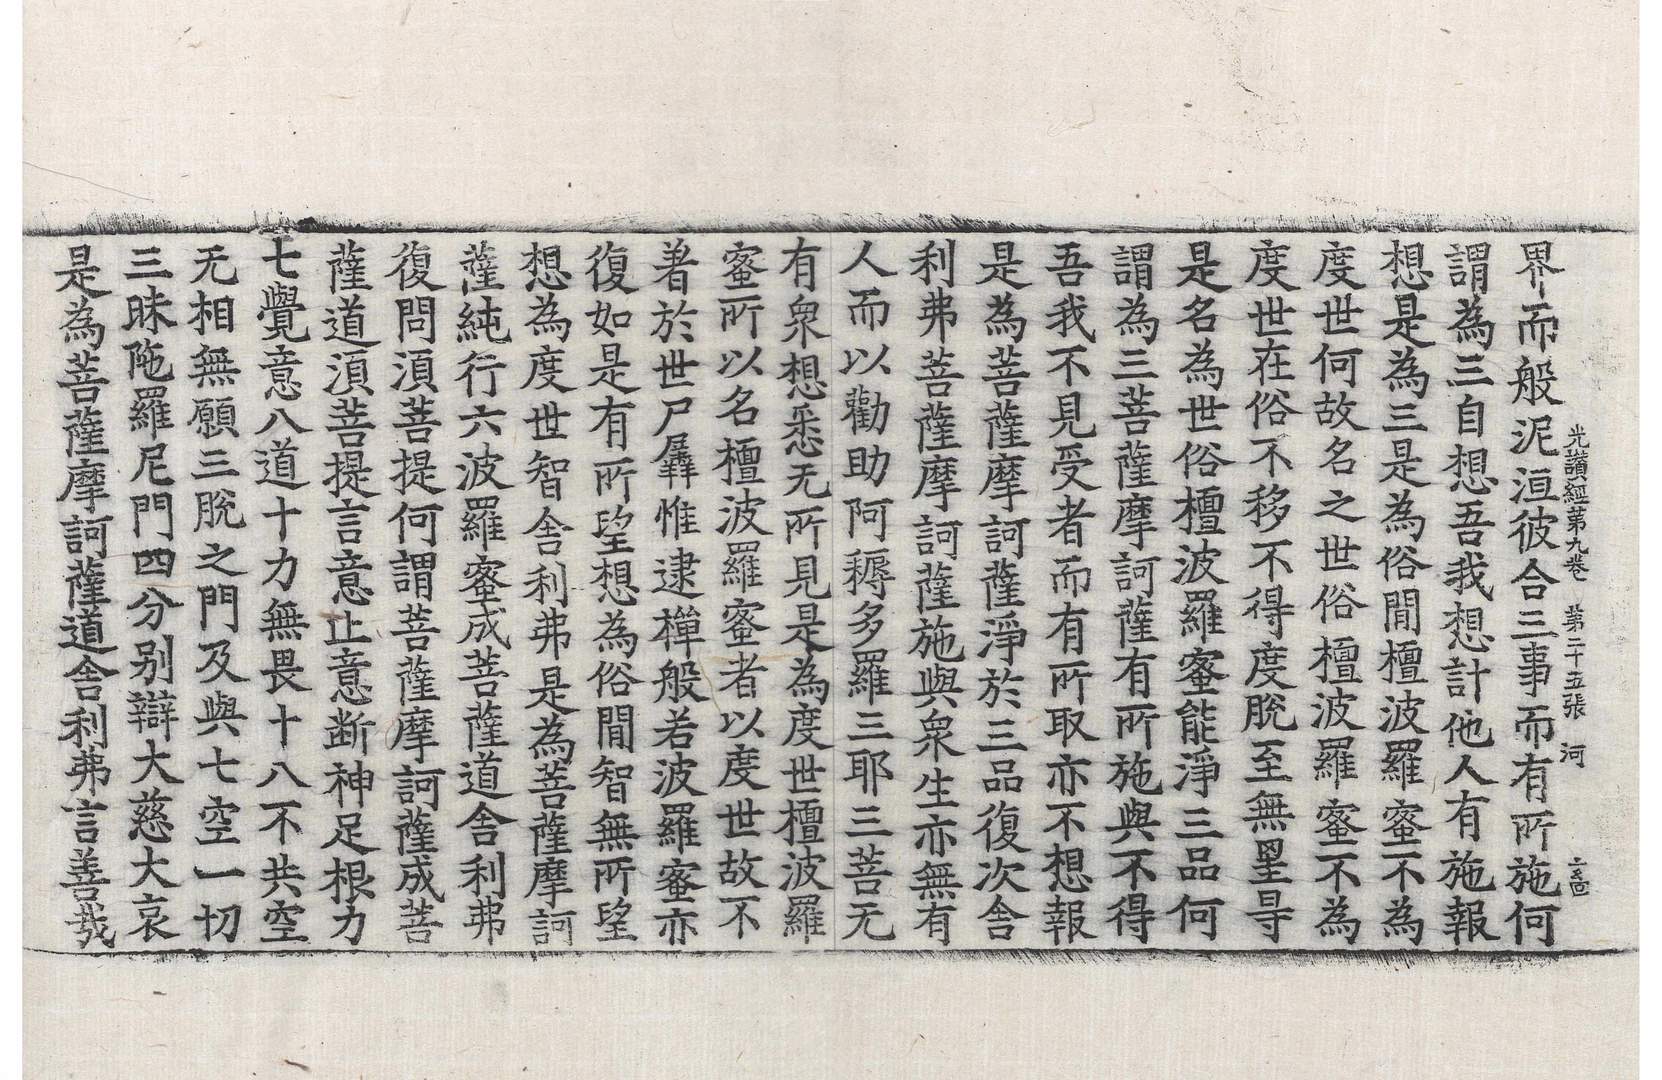 光讚經第九卷　第二十五張　河
界而般泥洹彼合三事而有所施何
謂為三自想吾我想計他人有施報
想是為三是為俗閒檀波羅蜜不為
度世何故名之世俗檀波羅蜜不為
度世在俗不移不得度脫至無罣㝵
是名為世俗檀波羅蜜能淨三品何
謂為三菩薩摩訶薩有所施與不得
吾我不見受者而有所取亦不想報
是為菩薩摩訶薩淨於三品復次舍
利弗菩薩摩訶薩施與衆生亦無有
人而以勸助阿耨多羅三耶三菩无
有衆想悉无所見是為度世檀波羅
蜜所以名檀波羅蜜者以度世故不
著於世尸羼惟逮樿般若波羅蜜亦
復如是有所望想為俗閒智無所望
想為度世智舍利弗是為菩薩摩訶
薩純行六波羅蜜成菩薩道舍利弗
復問湏菩提何謂菩薩摩訶薩成菩
薩道湏菩提言意止意断神足根力
七覺意八道十力無畏十八不共空
无相無願三脫之門及與七空一切
三昧陁羅尼門四分别辯大慈大哀
是為菩薩摩訶薩道舍利弗言善哉